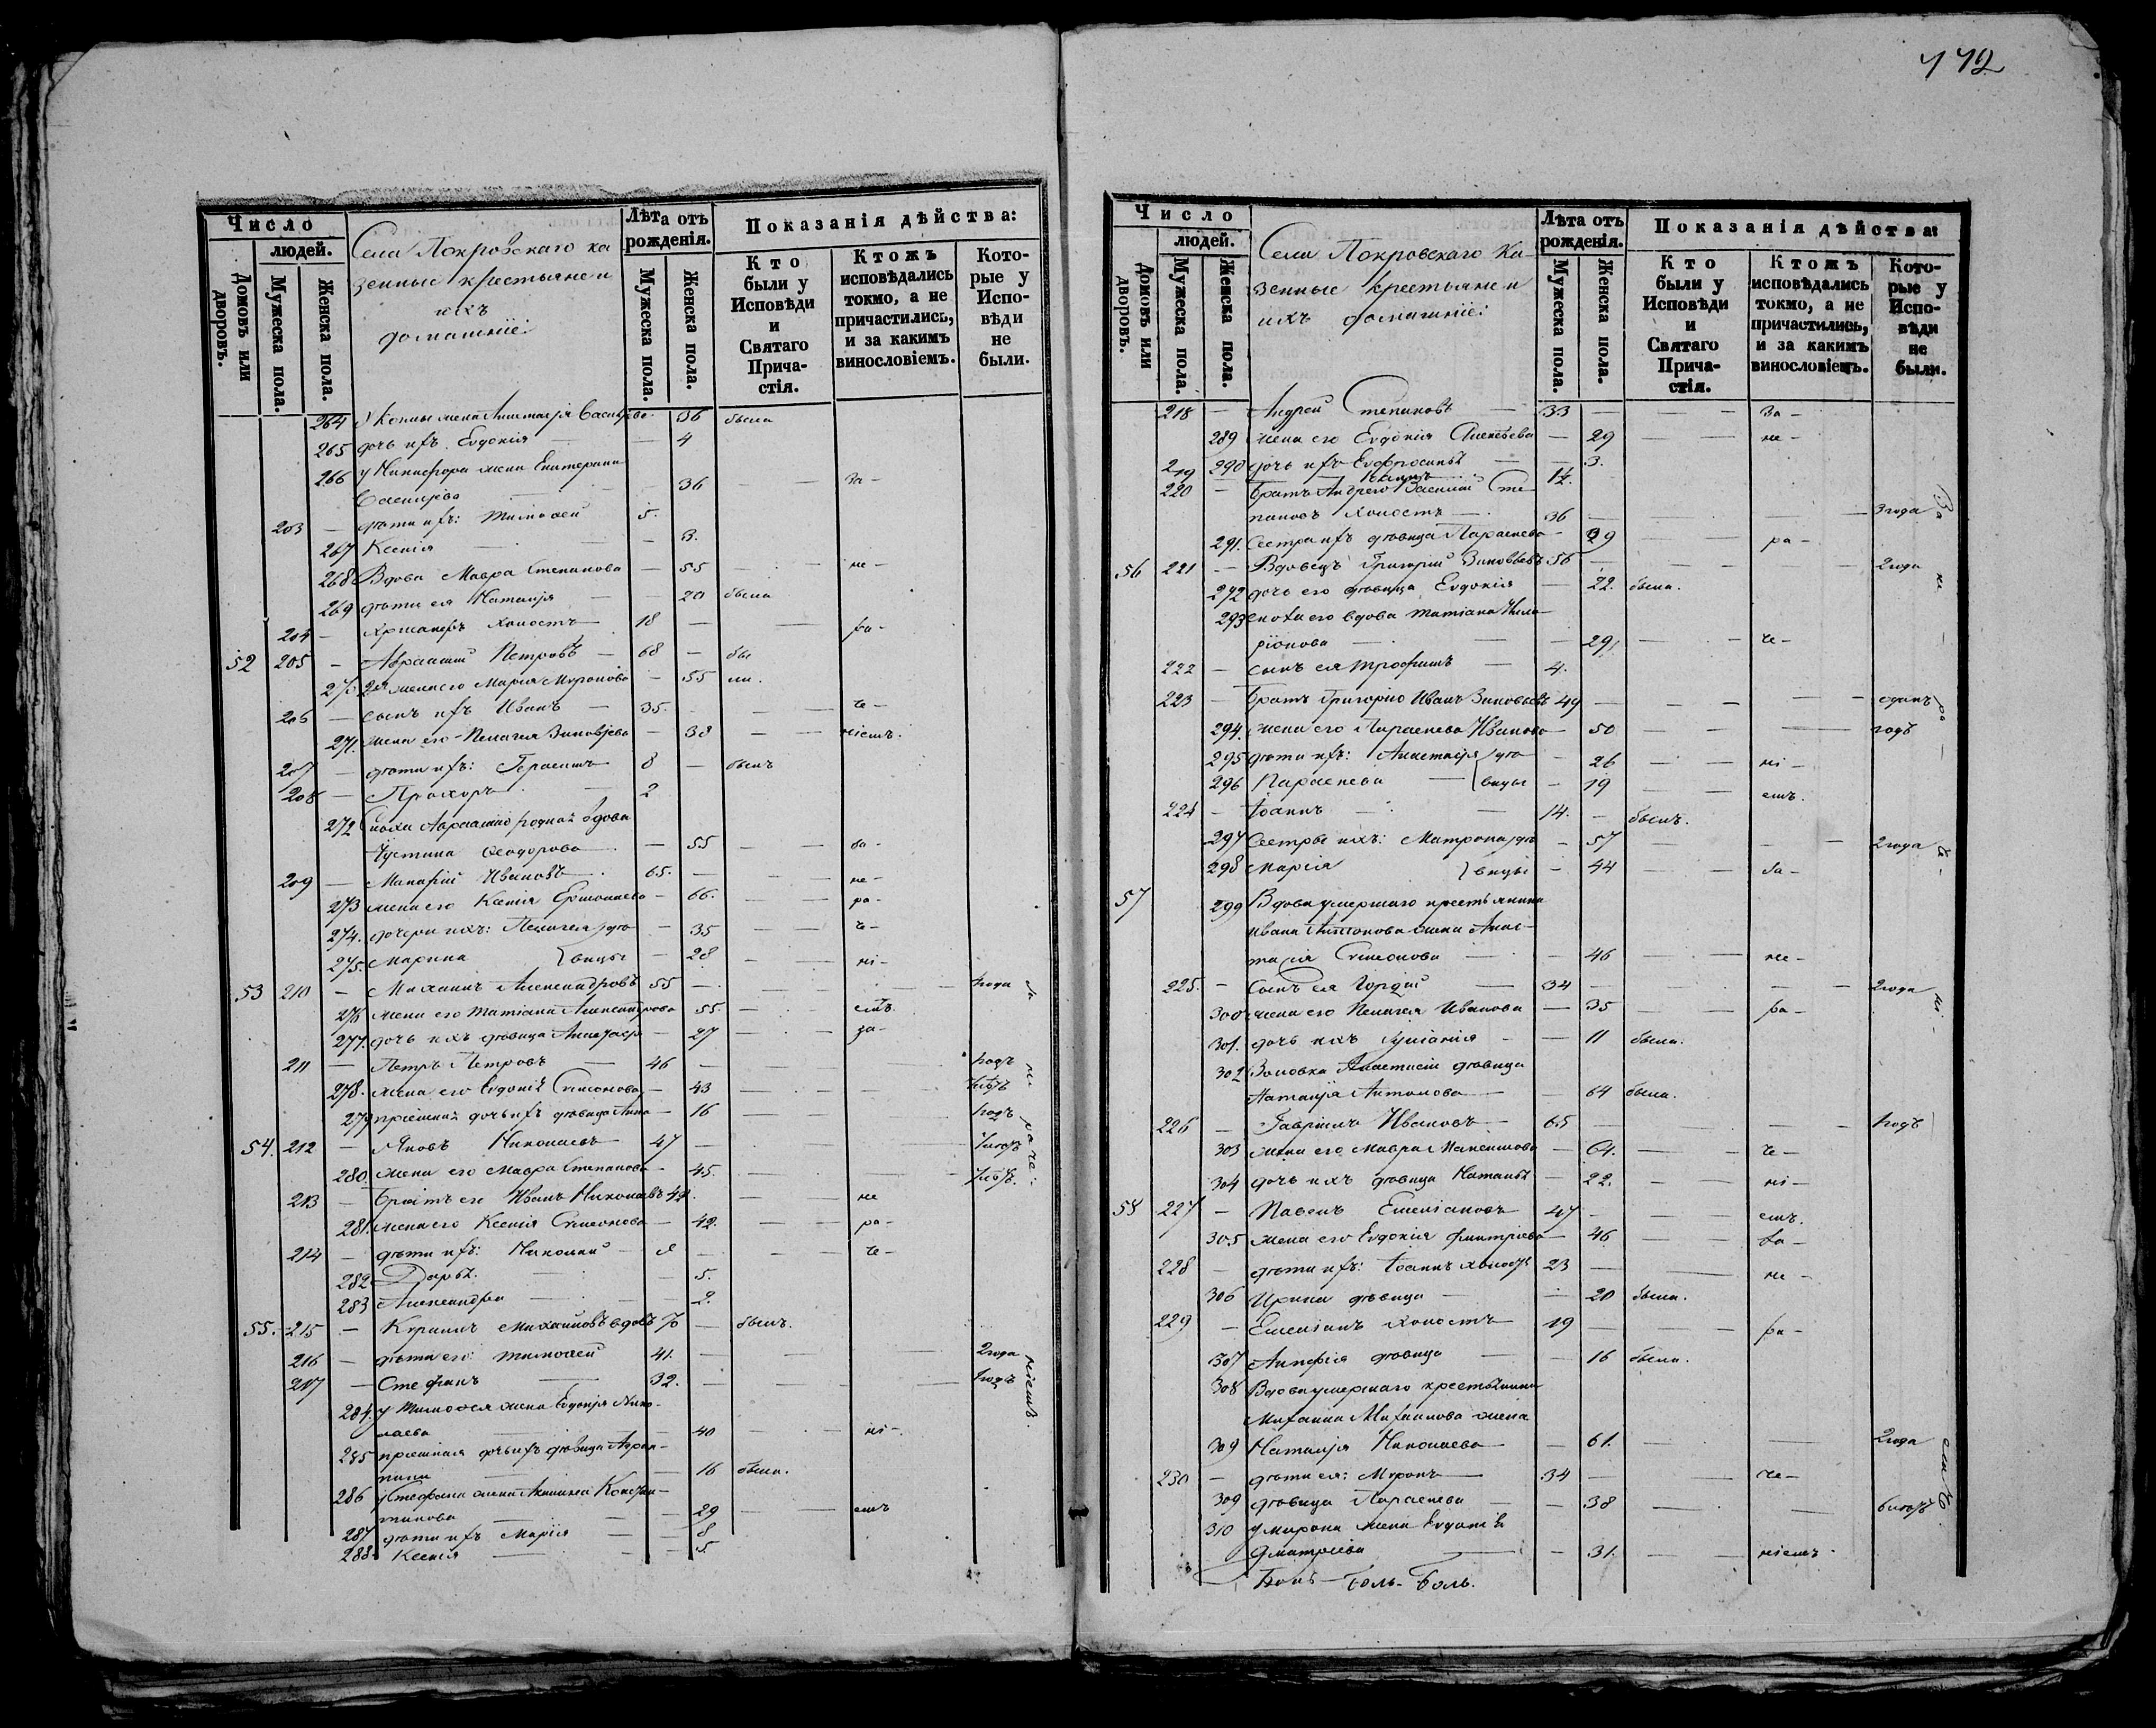 172
Число
людей.
Домовъ или дворовъ.
Мужеска пола.
Женска пола.
Села Покровскаго ка
зенные крестьяне и
ихъ
домашніе:
Лѣта отъ рожденія.
Мужеска пола.
Женска пола.
Показанія дѣйства:
Кто были у Исповѣди и Святаго Прича-стія.
Ктожъ исповѣдались токмо, а не причастились, и за какимъ винословіемъ.
Кото-рые у Испо-вѣди не были.
264 жена Анастасія Васильева 36 была
265 дочь ихъ Евдокія — 4
266 у Никифора жена Екатерина
Васильева 36 — — за-
203 — дѣти ихъ: Тимофей 5.
267 Ксенія — 3.
268 Вдова Мавра Степанова — 55 — не-
269 дѣти ея Наталія — 20 была
204 — холостъ 18 — ра-
52 205 — Авраамій Петровъ — 68 — бы
270 2я жена его Марія Миронова — 55 ли.
206 — сынъ ихъ Иванъ — 35. — че-
271. жена его Пелагея Зиновьева — 38 — — ніемъ.
207 — дѣти ихъ: Герасимъ 8 — былъ
208 — Прохоръ 2
272 Сноха Авраамію родная вдова
Іустина Ѳеодорова — 55 — — за-
209 — Макарій Ивановъ 65. — не-
273 жена его Ксенія Ермолаева — 66. — — ра-
274. дочери ихъ: Пелагея дѣ — 35 — — че-
275. Марина вицы — 28 — — ні-
53 210 — Михаилъ Александровъ 55 — — — года за
276 жена его Татіана Александрова 55. — емъ.
277. дочь ихъ дѣвица Анастасія — 27 — за-
211 — Петръ Петровъ — 46 — годъ не
278. жена его Евдокія Симонова — 43 —
279 пріемная дочь ихъ дѣвица Анна — 16 — годъ ра
54. 212 — Яковъ Николаевъ 47 — че
280. жена его Мавра Степанова — 45. —
213 — Братъ его Иванъ Николаевъ 44. — — не
281. жена его Ксенія Симонова — 42. — — ра-
214 — дѣти ихъ: Николай — — че-
282 Дарья. — 5.
283 Александра — 2.
55. 215 — Кириллъ Михайловъ вдовъ 70 — былъ.
216 — дѣти его: Тимофей 41. — — 2 года ніемъ.
217 — Стефанъ 32. — — годъ
284. у Тимофея жена Евдокія Нико-
лаева 40 — ні-.
285 пріемная дочь ихъ дѣвица Агрип-
пина — 16 была.
286 у Стефана жена Акилина Констан-
тинова — 29 — — емъ
287 дѣти ихъ Марія — 8
288. Ксенія — 5.
Число
людей.
Домовъ или дворовъ.
Мужеска пола.
Женска пола.
Села Покровскаго Ка-
зенные крестьяне и
ихъ домашніе:
Лѣта отъ рожденія.
Мужеска пола.
Женска пола.
Показанія дѣйства:
Кто были у Исповѣди и Святаго Прича-стія.
Ктожъ исповѣдались токмо, а не причастились, и за какимъ винословіемъ.
Кото-рые у Испо-вѣди не были.
218 — Андрей Степановъ — 33 — — за-
289 жена его Евдокія Алексѣева — 29 — не-
219 290 дочь ихъ Евфросинья — 3.
220 — Братъ Андрею Василій Сте
пановъ холостъ — 36 — — 3 года за
291. Сестра ихъ дѣвица Параскева — 39 — ра-
56 221 — Вдовецъ Григорій Зиновьевъ 56 — — 2 года не
292 дочь его дѣвица Евдокія — 22. была.
293 сноха его вдова Татіана Ила-
ріонова — 29 — че-
222 — сынъ ея Трофимъ — 4.
223 — Братъ Григорію Иванъ Зиновьевъ 49 — — — одинъ ра
294. жена его Параскева Иванова — 50 — — годъ
295 дѣти ихъ: Анастасія дѣ — 26 — ні-
296 Параскева вицы — 19 — емъ.
224 — Іоаннъ 14. — былъ.
297 Сестры ихъ: Матрона дѣ — 57 — — 2 года че-
298 Марія вицы — 44 — за-
57 299 Вдова умершаго крестьянина
Ивана Антонова жена Анас-
тасія Симонова — 46 — не-
225. — Сынъ ея Гордѣй — 34 — — 2 года ні-
300 жена его Пелагея Иванова — 35 — ра-
301. дочь ихъ Іуліанія — 11 была.
302 Золовка Анастасіи дѣвица
Наталія Антонова — 64 была.
226 — Гавріилъ Ивановъ — 65 — — годъ
303 жена его Мавра Максимова — 64. — че-
304 дочь ихъ дѣвица Наталья — 22. — ні-
58 227 — Павелъ Емеліановъ 47 — емъ.
305 жена его Евдокія Дмитріева — 46 — за-
228 — дѣти ихъ: Іоаннъ холостъ 23 — не-
306 Ирина дѣвица — 20 была.
229 — Емеліанъ холостъ 19 — ра-
307 дѣвица — 16 была.
308 Вдова умершаго крестьянина
Михаила Михайлова жена
309 Наталія Николаева — 61. — — 2 года емъ
230 — дѣти ея: Миронъ 34 — че-
309 дѣвица Параскева — 38 — —
310 у Мирона жена Евдокія
Дмитріева — 31. — ніемъ.